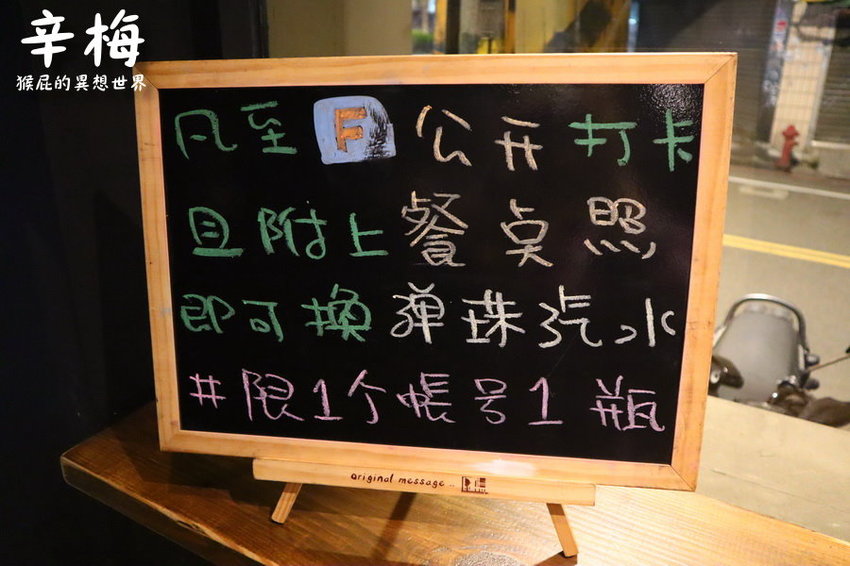 辛梅
猴屁的異想世界
凡至 F 公开打卡
且附上餐点照
即可換弹珠汽水
#限1个帳号1瓶
original message..